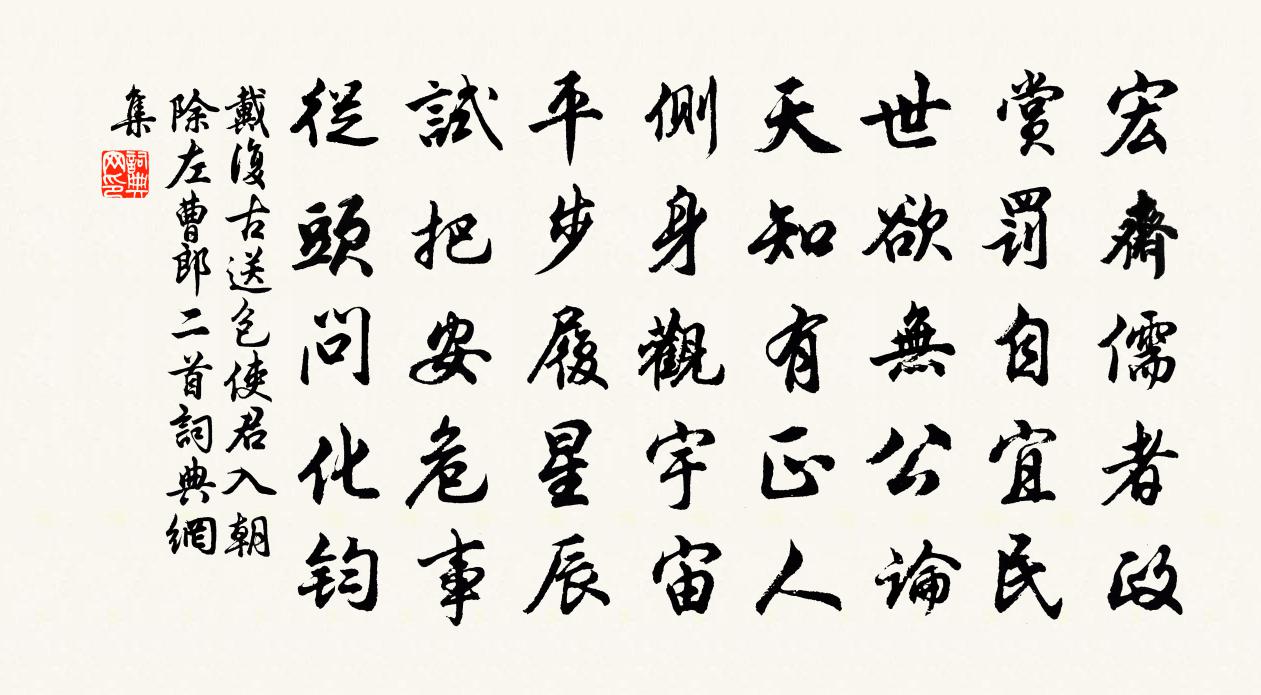 宏齋儒者政
賞罰自宜民
世欲無公論
天知有正人
側身觀宇宙
平步履星辰
試把安危事
從頭問化鈞
戴復古送包使君入朝
除左曹郎二首詞典網
集
詞典
网印